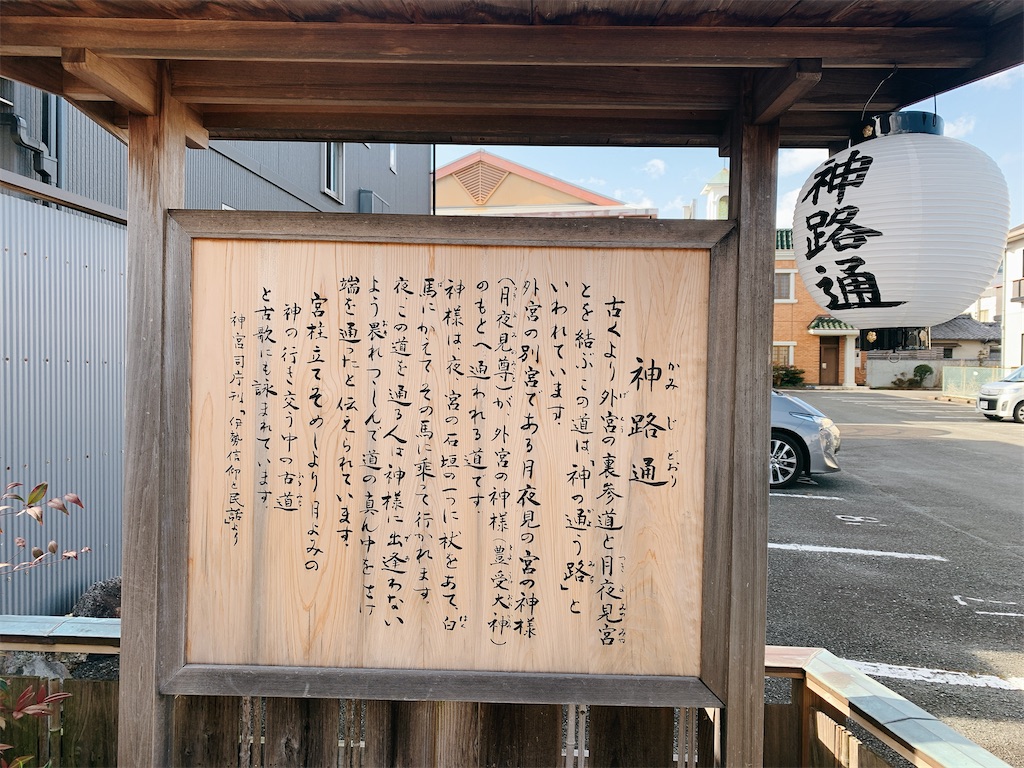 神路通
古くより外宮の裏参道と月夜見宮
とを結ぶこの道は「神の通う路」と
いわれています。
外宮の別宮である月夜見の宮の神様
(月夜見尊)が、外宮の神様(豊受大神)
のもとへ通われる道です。
神様は、夜、宮の石垣の一つに杖をあて、白
馬にかえて その馬に乗って行かれます。
夜、この道を通る人は神様に出逢わない
よう畏れつつしんで道の真ん中をさけ
端を通ったと伝えられています。
宮柱立てそめしより月よみの
神の行き交う中の古道
と古歌にも詠まれています。
神宮司庁刊「伊勢信仰と民話」より
神路通